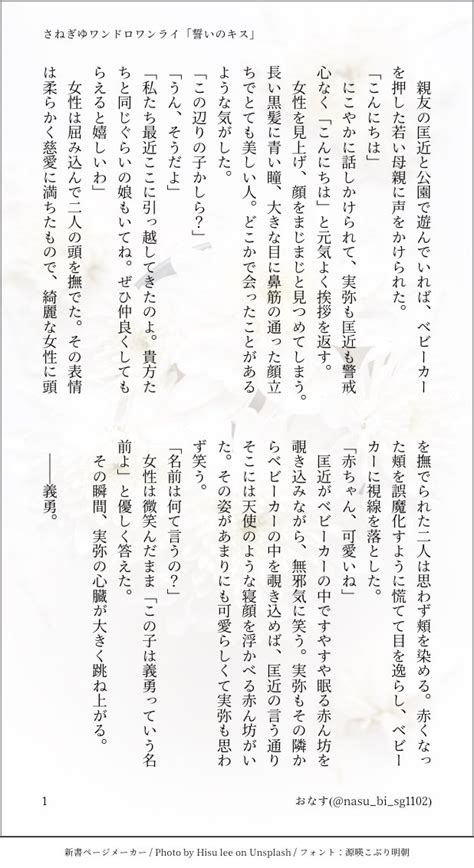 さねぎゆワンドロワンライ「誓いのキス」
親友の匡近と公園で遊んでいれば、ベビーカー
を押した若い母親に声をかけられた。
「こんにちは」
にこやかに話しかけられて、実弥も匡近も警戒
心なく「こんにちは」と元気よく挨拶を返す。
女性を見上げ、顔をまじまじと見つめてしまう。
長い黒髪に青い瞳、大きな目に鼻筋の通った顔立
ちでとても美しい人。どこかで会ったことがある
ような気がした。
「この辺りの子かしら？」
「うん、そうだよ」
「私たち最近ここに引っ越してきたのよ。貴方た
ちと同じぐらいの娘もいてね。ぜひ仲良くしても
らえると嬉しいわ」
女性は屈み込んで二人の頭を撫でた。その表情
は柔らかく慈愛に満ちたもので、綺麗な女性に頭
を撫でられた二人は思わず頬を染める。赤くなっ
た頬を誤魔化すように慌てて目を逸らし、ベビー
カーに視線を落とした。
「赤ちゃん、可愛いね」
匡近がベビーカーの中ですやすや眠る赤ん坊を
覗き込みながら、無邪気に笑う。実弥もその隣か
らベビーカーの中を覗き込めば、匡近の言う通り
そこには天使のような寝顔を浮かべる赤ん坊がい
た。その姿があまりにも可愛らしくて実弥も思わ
ず笑う。
「名前は何て言うの？」
女性は微笑んだまま「この子は義勇っていう名
前よ」と優しく答えた。
その瞬間、実弥の心臓が大きく跳ね上がる。
――義勇。
1
おなす(@nasu_bi_sg1102)
新書ページメーカー / Photo by Hisu lee on Unsplash / フォント：源暎こぶり明朝